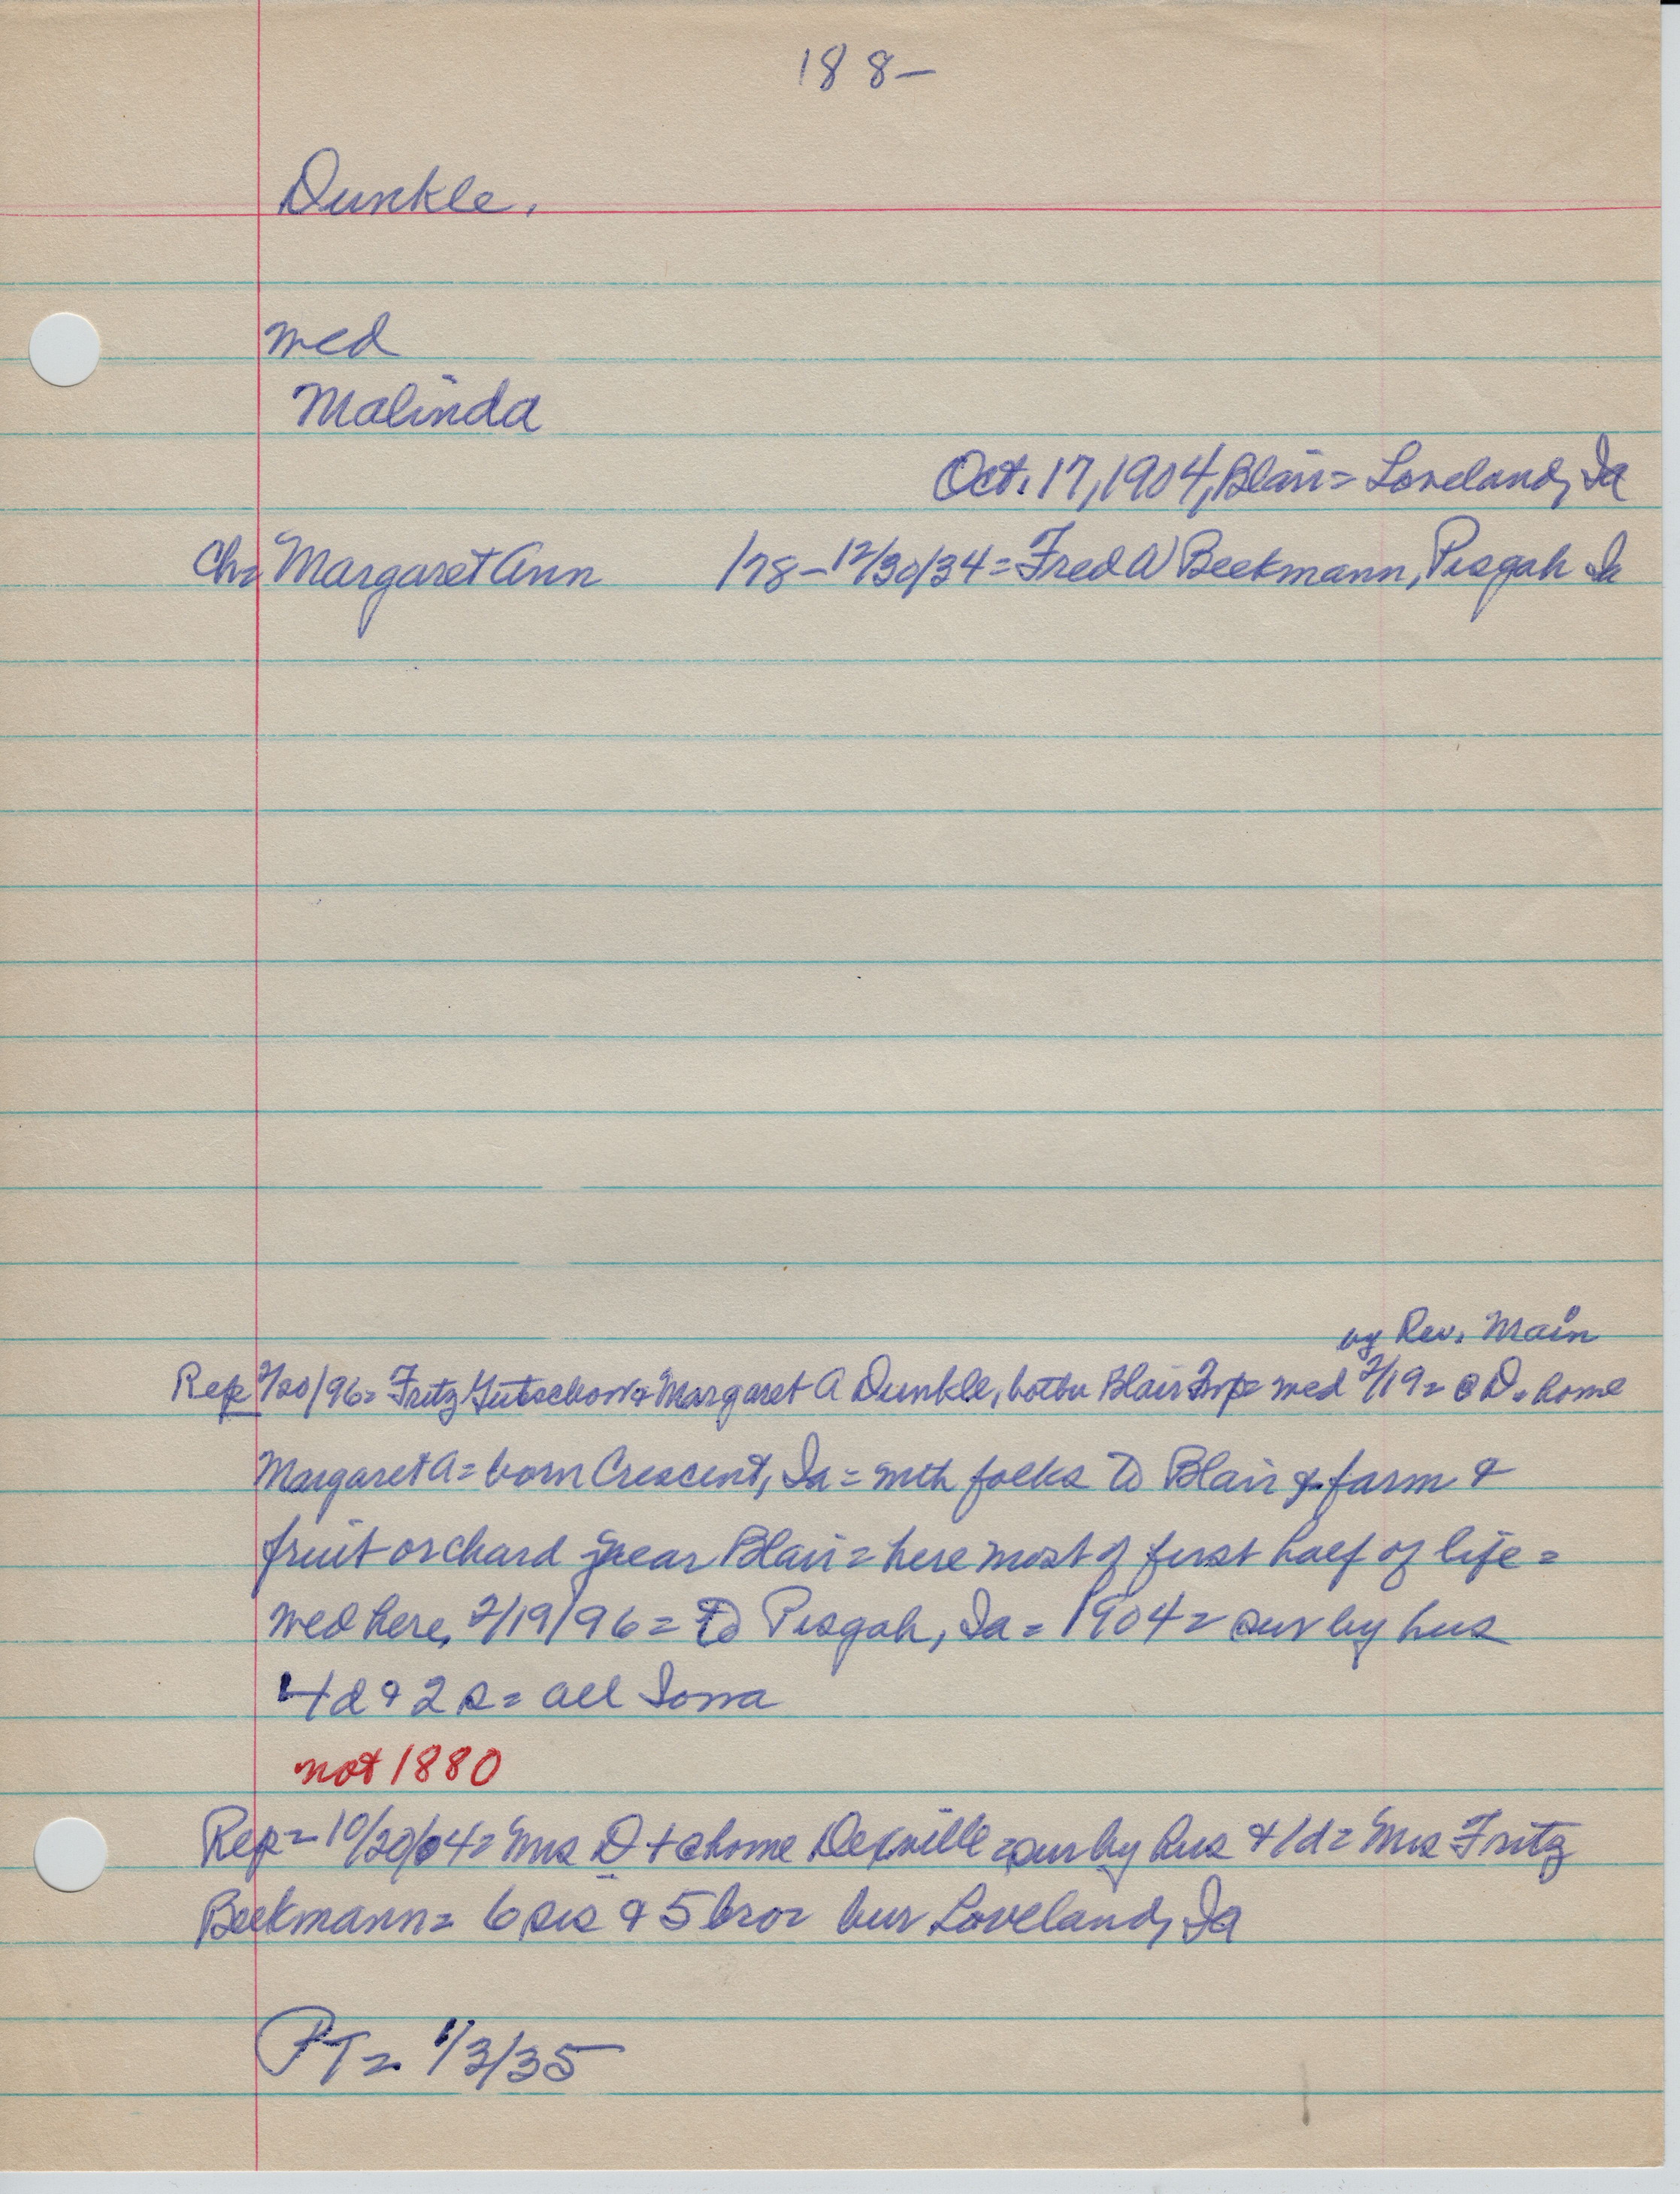 188-
Dunkle,
med
Malinda
Oct. 17, 1904, Blair = Loveland, Ia
Ch= Margaret Ann 178 - 12/30/34 = Fred W Beekmann, Pisgah Ia
by Rev. Main
Rep 2/20/96 = Fritz & Margaret A Dunkle, both Blair Twp = med 2/19 = @ D. home
Margaret A = born Crescent, Ia = with folks to Blair & farm &
fruit orchard near Blair = here most of first half of life =
med here, 2/19/96 = to Pisgah, Ia = 1904 = sur by hus
4 d & 2 s = all Iowa
not 1880
Rep = 10/20/04 = Mrs D + @ home DeSville = sur by hus & 1 d = Mrs Fritz
Beekmann = 6 sis & 5 bro = bur Loveland, Ia
PT = 1/3/35